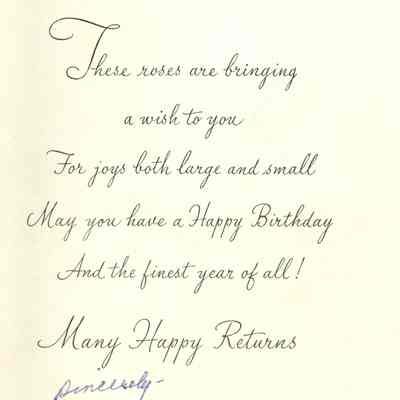 These roses are bringing
a wish to you
For joys both large and small
May you have a Happy Birthday
And the finest year of all!
Many Happy Returns
Sincerely-